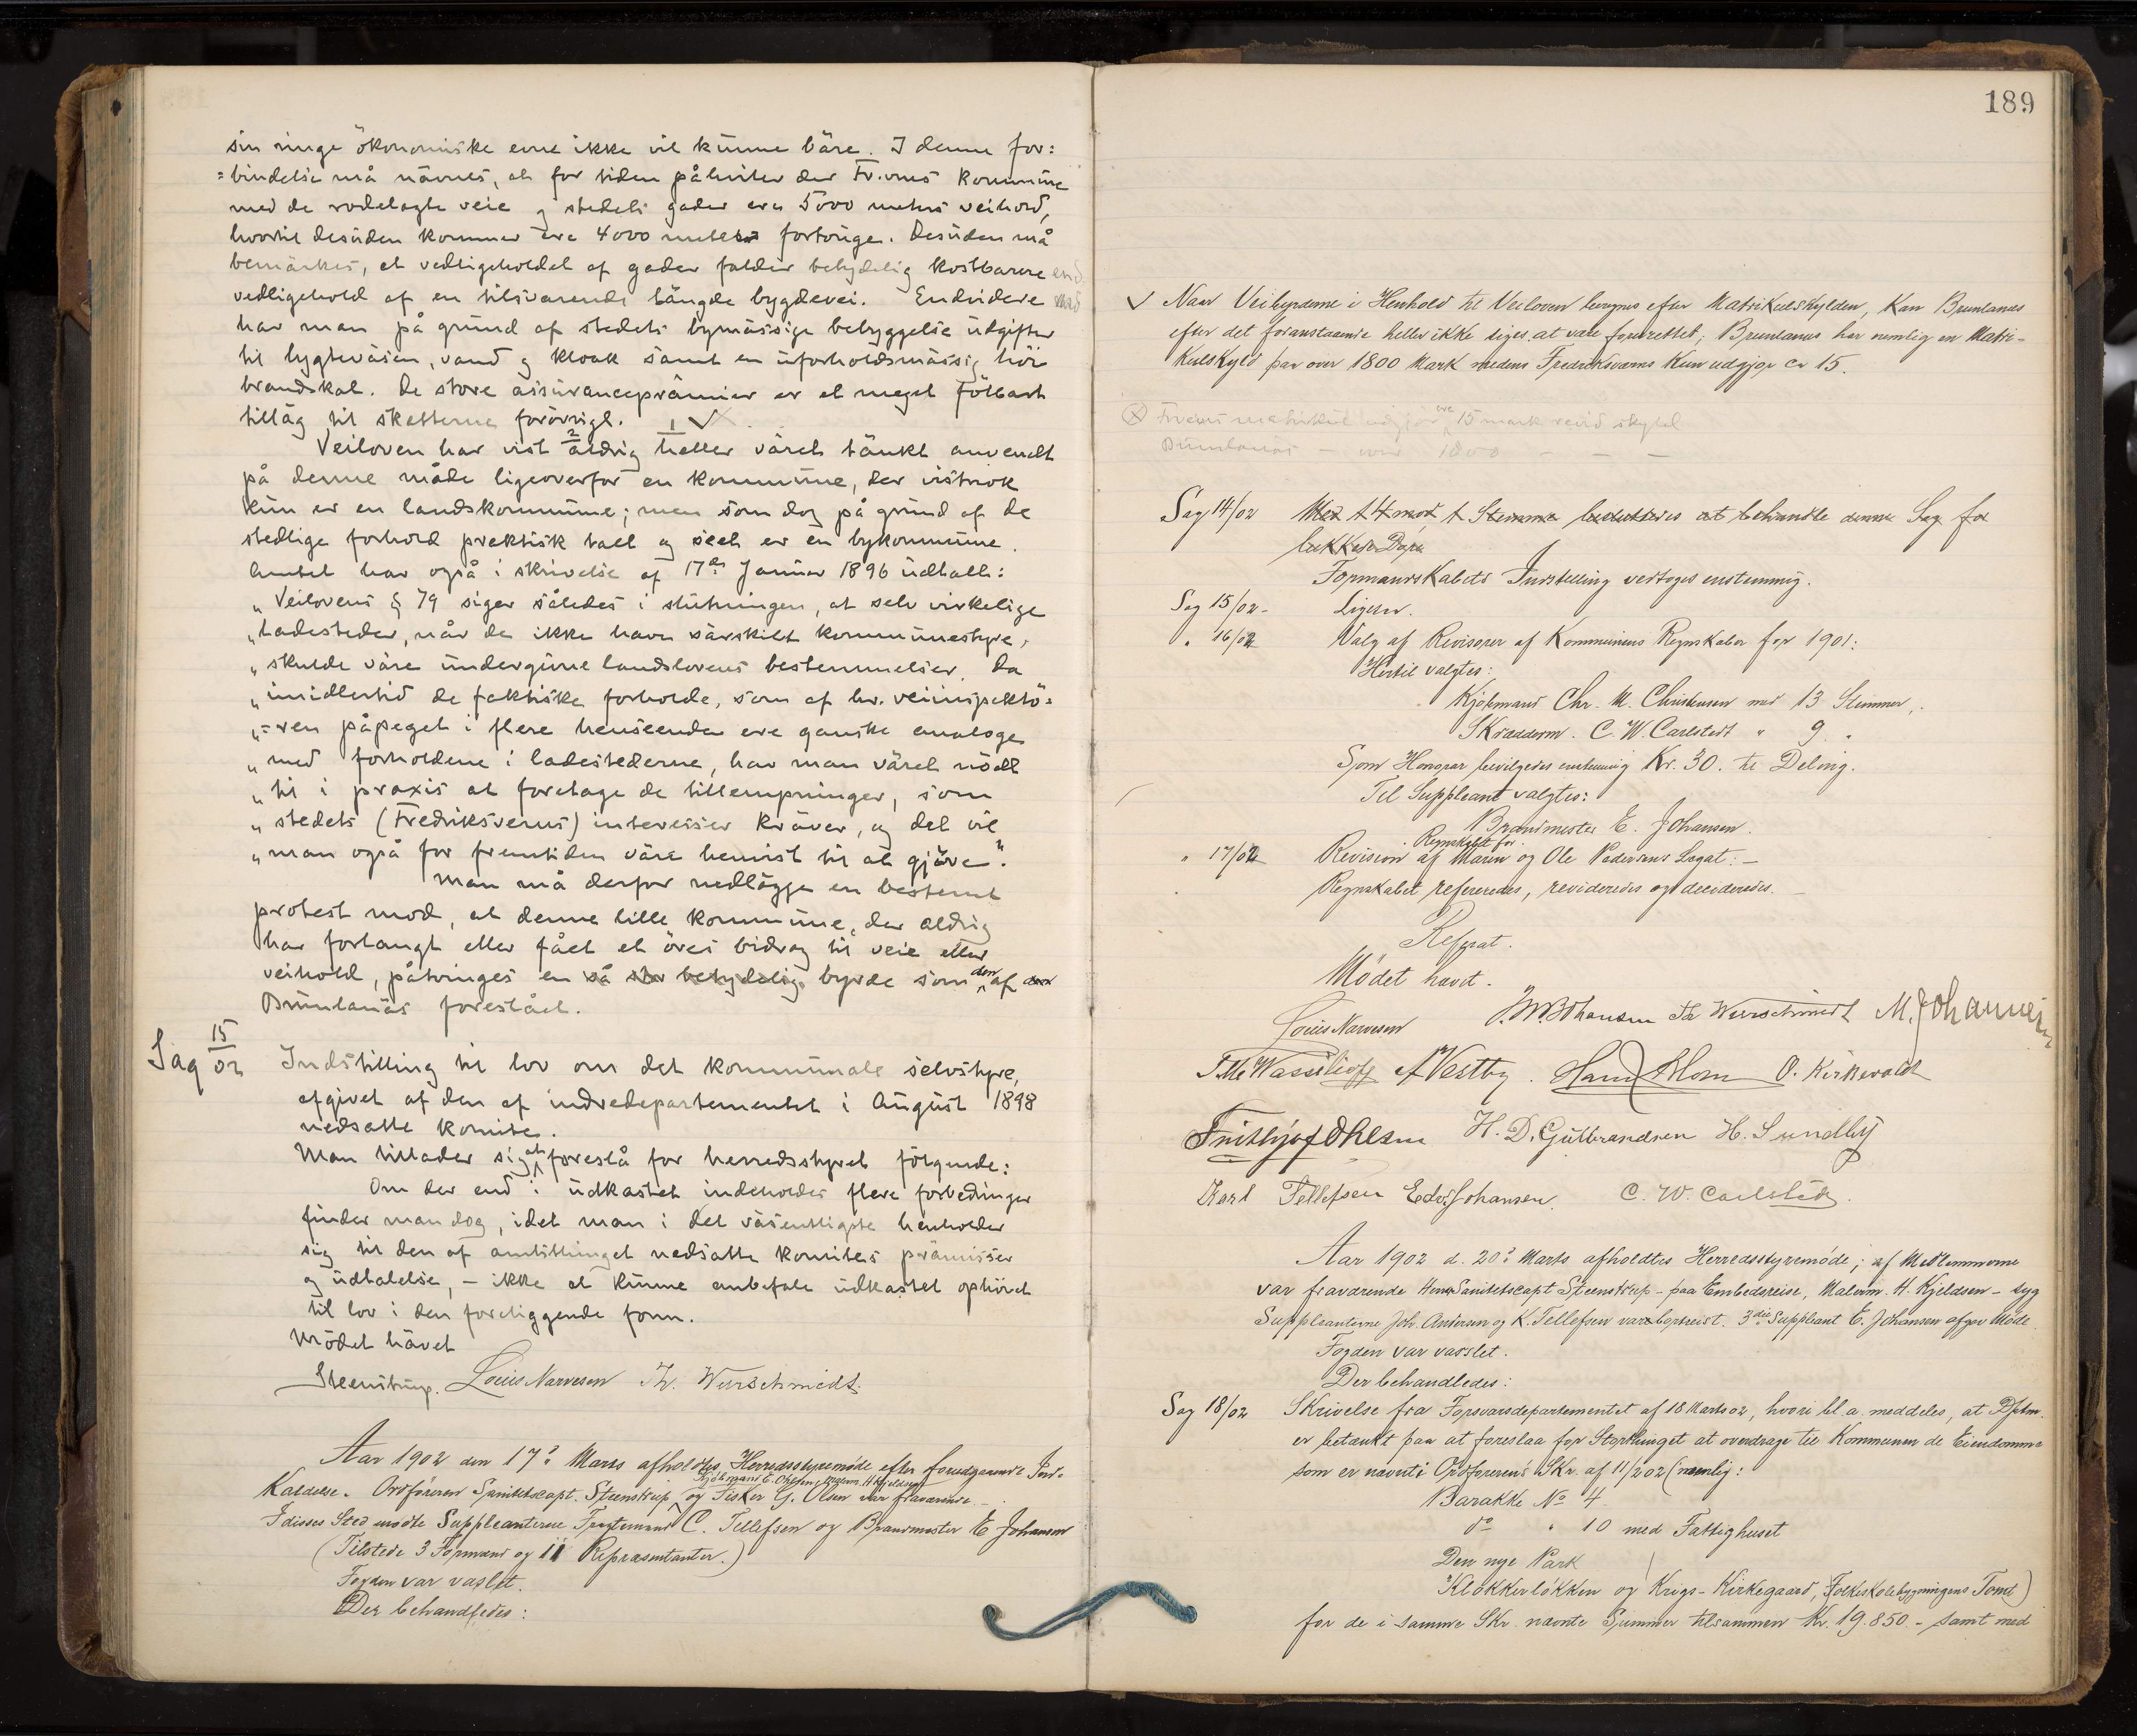 sin ringe ökonomiske evne ikke vil kunne bäre. I denne for:
=bindelse må nävnes, at for tiden påhviler der Fr.verns kommune
med de rodelagte veie og stedets gader era 5000 meters veihold,
hvortil desuden kommer era 4000 meter fortouge. Desuden må
bemärkes, at vedligeholdet af gader falder betydelig kostbarere end
vedligehold af en tilsvarende längde bygdevei. Endvidere
har man på grund af stedets bymässige bebyggelse udgifter
til lygteväsen, vand og kloak samt en uforholdsmässig höi
brandskat. De store assuranceprämier er et meget fölbart
tilläg til skatterne forövrigt.
Veiloven har vist aldrig heller väret tänkt anvendt
på denne måde ligeoverfor en kommune, der vistnok
kun er en landskommune; men som dog på grund af de
stedlige forhold praktisk talt og seet er en bykommune.
Amtet har også i skrivelse af 17de Januar 1896 udtalt:
"Veilovens § 79 siger således i slutningen, at selv virkelige
"ladesteder, når de ikke have särskilt kommunestyre,
"skulde väre undergivne landslovens bestemmelser. Da
"imidlertid de faktiske forholde, som af hr. veiinspektö=
"=ren påpeget i flere henseender ere ganske analoge
"med forholdene i ladestederne, har man väret nödt
"til i praxis at foretage de tillempninger, som
"stedets (Fredriksverns) interesser kräver, og det vil
"man også for fremtiden väre henvist til at gjöre".
Man må derfor nedlägge en bestemt
protest mod, at denne lille kommune, der aldrig
har forlangt eller fået et öres bidrag til veie eller
veihold, påtvinges en så stor betydelig byrde som den af
Brunlanäs foreslået.
Sag 15/02 Indstilling til lov om det kommunale selvstyre,
afgivet af den af indredepartementet i August 1898
nedsatte komite.
Man tillader sig at foreslå for herredsstyret fölgende:
Om der end i udkastet indeholdes flere forbedringer
finder man dog, idet man i det väsentligste henholder
sig til den af amtsthinget nedsatte komites prämisser
og udtalelse, - ikke at kunne anbefale udkastet ophöiet
til lov i den foreliggende form.
Mödet hävet
Steenstrup. Louis Narvesen Th. Wurschmidt.
Aar 1902 den 17de Marts afholdtes Herredsstyremöde efter foregaaende Ind-
Kjöbmand E. Ohlsen, Malerm. H. Kjeldsen
kaldelse. Ordföreren Sanitetscapt. Steenstrup, og Fisker G. Olsen var fraværende.
I disses Sted mödte Suppleanterne C. Tellefsen og Brandmester E Johansen
(Tilstede 3 Formænd og 11 Repræsentanter.)
Fogden var varslet.
Der behandledes:
189
√ Naar Veibyrderne i Henhold til Veiloven beregnes efter Matrikulskylden, kan Brunlanæs
efter det foranstaaende heller ikke siges at være foruretted; Brunlanæs har nemlig en Matri-
kulskyld paa over 1800 Mark medens Fredriksværns kun udgjør ca 15.
Fr.verns matrikul udgjör era 15 mark revid skyld
Brunlanäs - over 1800 - - -
Sag 14/02 Med 14 mod 1 Stemme besluttedes at behandle denne Sag for
lukkede Døre
Formandskabets Indstilling vedtoges enstemmig.
Sag 15/02 - Ligesaa.
" 16/02 Valg af Revisorer af Kommunens Regnskaber for 1901:
Hertil valgtes:
Kjöbmand Chr. M. Christensen med 13 Stemmer,
Skrædderm. C. W. Carlstedt " 9 "
Som Honorar bevilgedes enstemmig Kr. 30. til Deling.
Til Suppleant valgtes:
Brandmester E. Johansen.
Regnskabet for
" 17/02 Revision af Maren og Ole Pedersens Legat: -
Regnskabet refereredes, revideredes og decideredes. -
Referat.
Mödet hævet.
Louis Narvesen J. M. Johansen Th Wurschmidt M. Johannesen
Wassilioff A Vestby. Hans Blom O. Kirkevold
Frithjof Ohlsen H. D. Gulbrandsen H. Sundby
Karl Tellefsen Edv. Johansen. C. W. Carlstedt.
Aar 1902 d. 20de Marts afholdtes Herredsstyremöde; af Medlemmerne
var fraværende Herr Sanitetscapt Steenstrup - paa Embedsreise, Malerm. H. Kjeldsen - syg
Suppleanterne Joh. Andersen og K. Tellefsen var bortreist. 3die Suppleant E. Johansen afgav Möde.
Fogden var varslet.
Der behandledes:
Sag 18/02 Skrivelse fra Forsvarsdepartementet af 18 Marts 02, hvori bl. a. meddeles, at Dptm.
er betænkt paa at foreslaa for Storthinget at overdrage til Kommunen de Eiendomme
som er nævnt i Ordførerens Skr. af 11/2 02 (nemlig:
Barakke No 4
do " 10 med Fattighuset
Den nye Park
Klokkerløkken og Krigs-Kirkegaard, Folkeskolebygningens Tomt)
for de i samme Skr. nævnte Summer tilsammen Kr. 19.850 - samt med